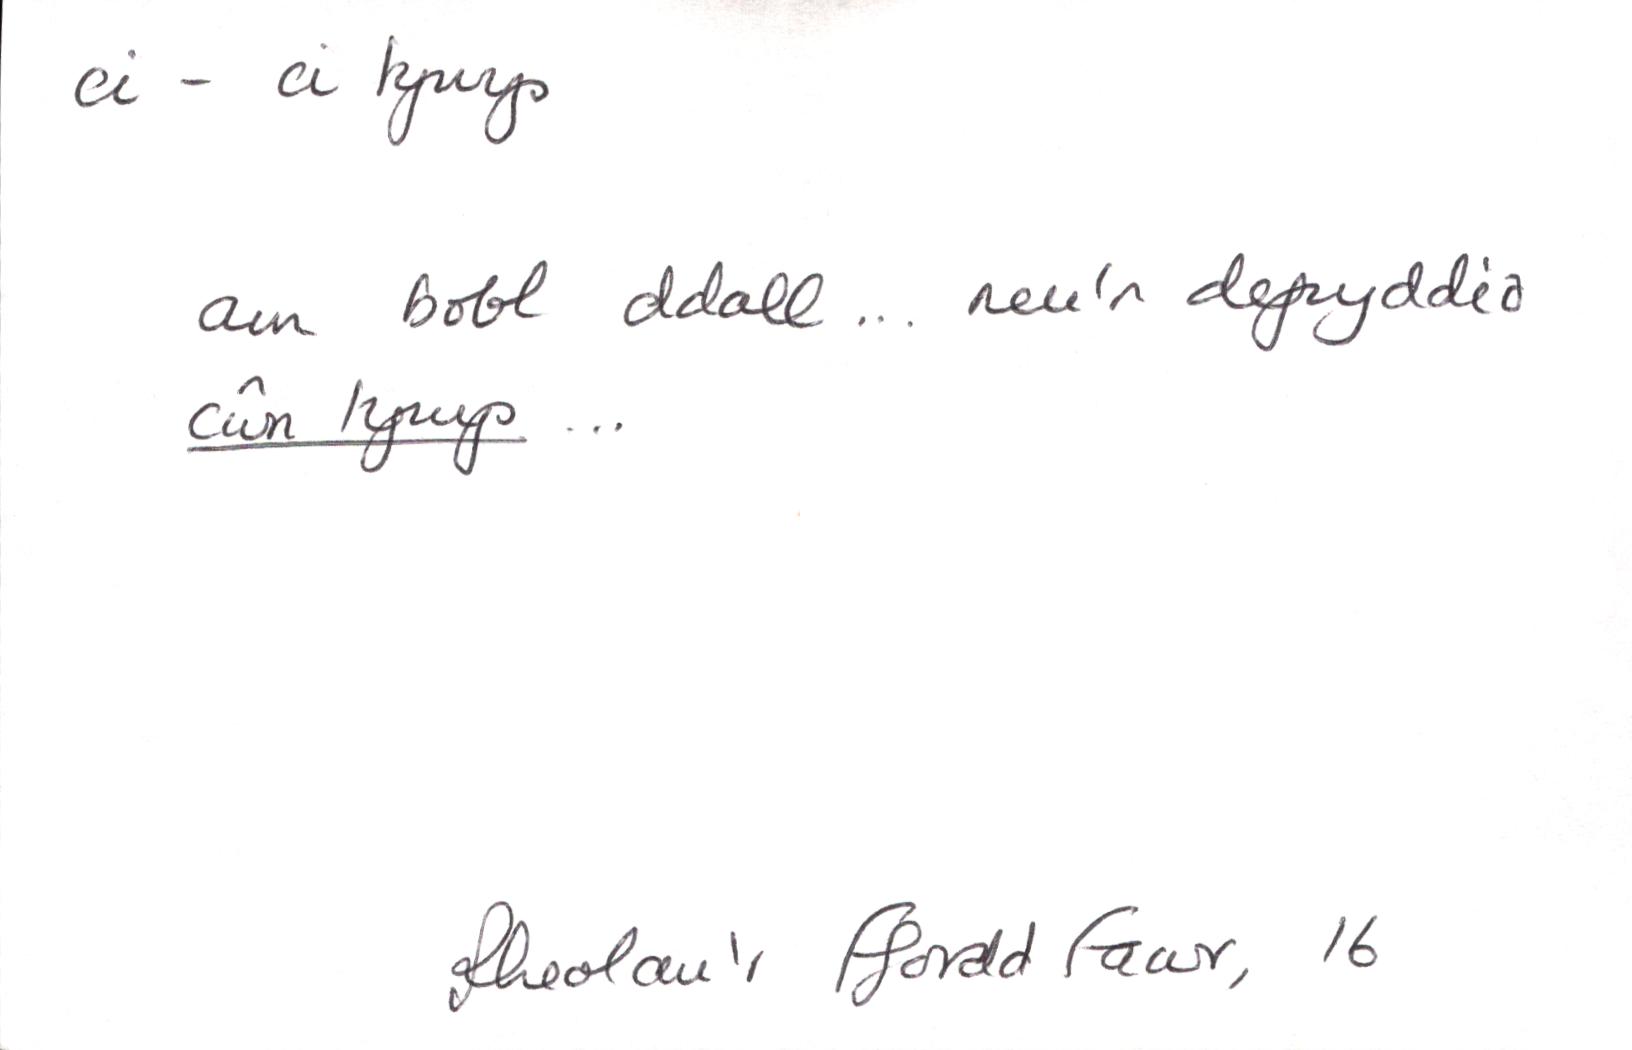 ci - ci tywys
am bobl ddall... neu'n defnyddio
cŵn tywys ...
Rheolau'r Ffordd Fawr, 16